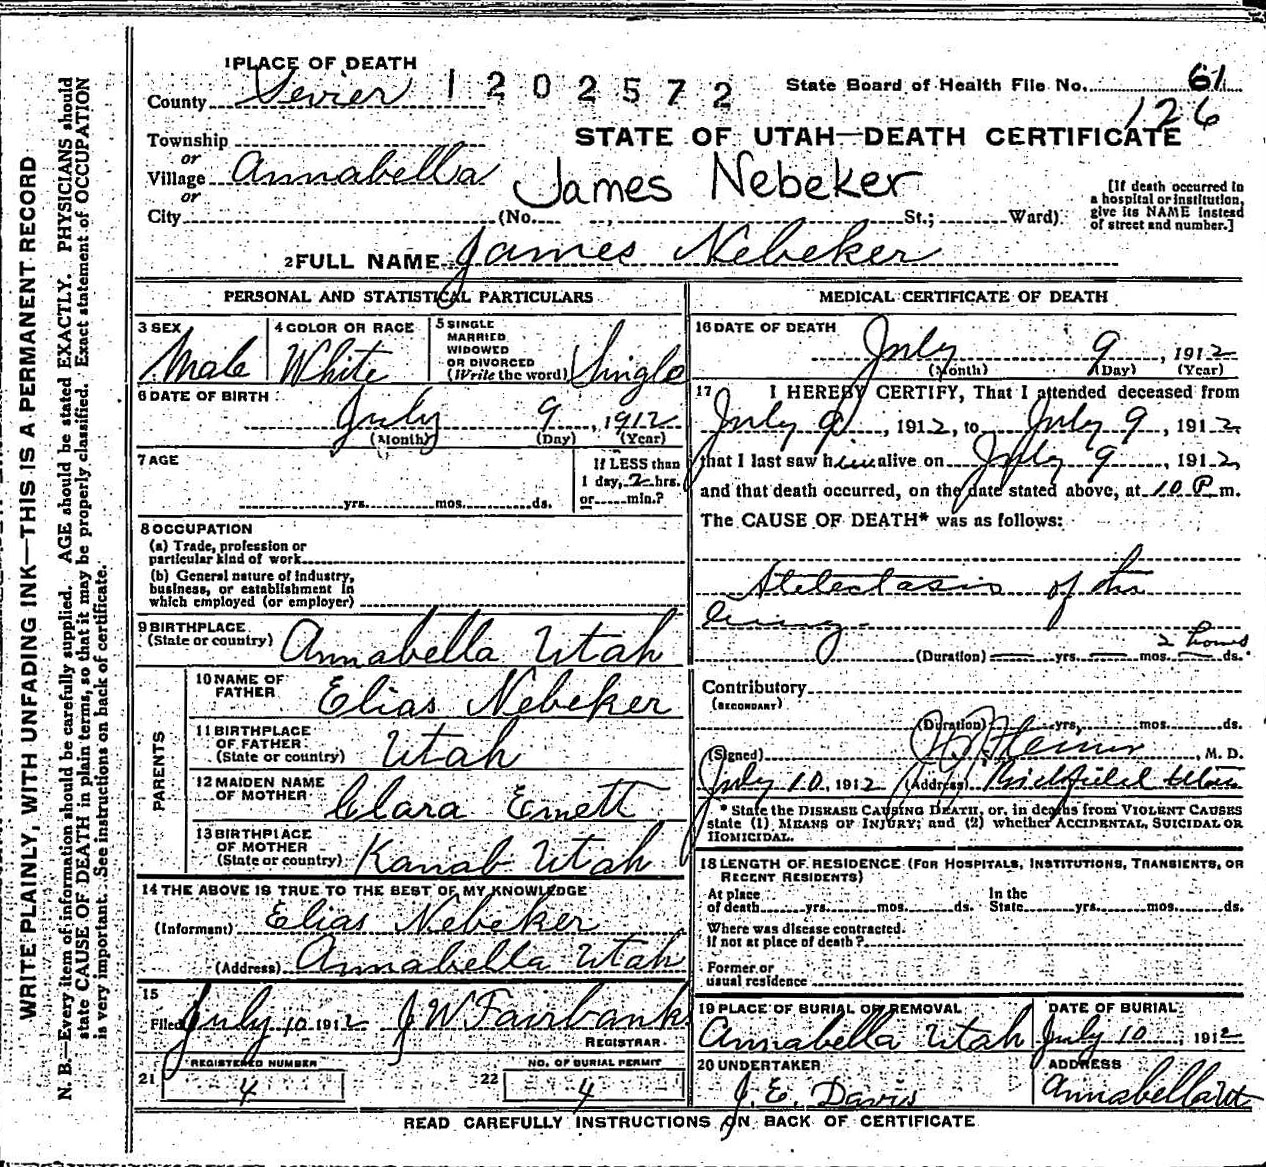 WRITE PLAINLY, WITH UNFADING INK—THIS IS A PERMANENT RECORD
N. B.—Every item of information should be carefully supplied. AGE should be stated EXACTLY. PHYSICIANS should
state CAUSE OF DEATH in plain terms, so that it may be properly classified. Exact statement of OCCUPATION
is very important. See instructions on back of certificate.
1 PLACE OF DEATH
County Sevier 1202572 State Board of Health File No. 61
126
Township
or
STATE OF UTAH—DEATH CERTIFICATE
Village Annabella
or
James Nebeker
City (No. , St.; Ward)
[If death occurred in
a hospital or institution,
give its NAME instead
of street and number.]
2 FULL NAME James Nebeker
PERSONAL AND STATISTICAL PARTICULARS
3 SEX
Male
4 COLOR OR RACE
White
5 SINGLE
MARRIED
WIDOWED
OR DIVORCED
(Write the word) Single
6 DATE OF BIRTH
July 9, 1912
(Month) (Day) (Year)
7 AGE
yrs. mos. ds.
If LESS than
1 day, 2 hrs.
or min.?
8 OCCUPATION
(a) Trade, profession or
particular kind of work
(b) General nature of industry,
business, or establishment in
which employed (or employer)
9 BIRTHPLACE
(State or country) Annabella Utah
PARENTS
10 NAME OF
FATHER Elias Nebeker
11 BIRTHPLACE
OF FATHER
(State or country) Utah
12 MAIDEN NAME
OF MOTHER Clara Emett
13 BIRTHPLACE
OF MOTHER
(State or country) Kanab Utah
14 THE ABOVE IS TRUE TO THE BEST OF MY KNOWLEDGE
(Informant) Elias Nebeker
(Address) Annabella Utah
15
Filed July 10 1912 J W Fairbank
REGISTRAR.
REGISTERED NUMBER
21 4
NO. OF BURIAL PERMIT
22 4
MEDICAL CERTIFICATE OF DEATH
16 DATE OF DEATH
July 9, 1912
(Month) (Day) (Year)
17 I HEREBY CERTIFY, That I attended deceased from
July 9, 1912, to July 9, 1912,
that I last saw him alive on July 9, 1912,
and that death occurred, on the date stated above, at 10 P m.
The CAUSE OF DEATH* was as follows:
Atelectasis of the
lung
2 hours
(Duration) yrs. mos. ds.
Contributory
(SECONDARY)
(Duration) yrs. mos. ds.
(Signed) , M. D.
July 10, 1912 (Address) Richfield Utah
* State the DISEASE CAUSING DEATH, or, in deaths from VIOLENT CAUSES
state (1) MEANS OF INJURY; and (2) whether ACCIDENTAL, SUICIDAL OR
HOMICIDAL.
18 LENGTH OF RESIDENCE (FOR HOSPITALS, INSTITUTIONS, TRANSIENTS, OR
RECENT RESIDENTS)
At place In the
of death yrs. mos. ds. State yrs. mos. ds.
Where was disease contracted.
if not at place of death?
Former or
usual residence
19 PLACE OF BURIAL OR REMOVAL
Annabella Utah
DATE OF BURIAL
July 10, 1912
20 UNDERTAKER
J. E. Davis
ADDRESS
Annabella Ut
READ CAREFULLY INSTRUCTIONS ON BACK OF CERTIFICATE